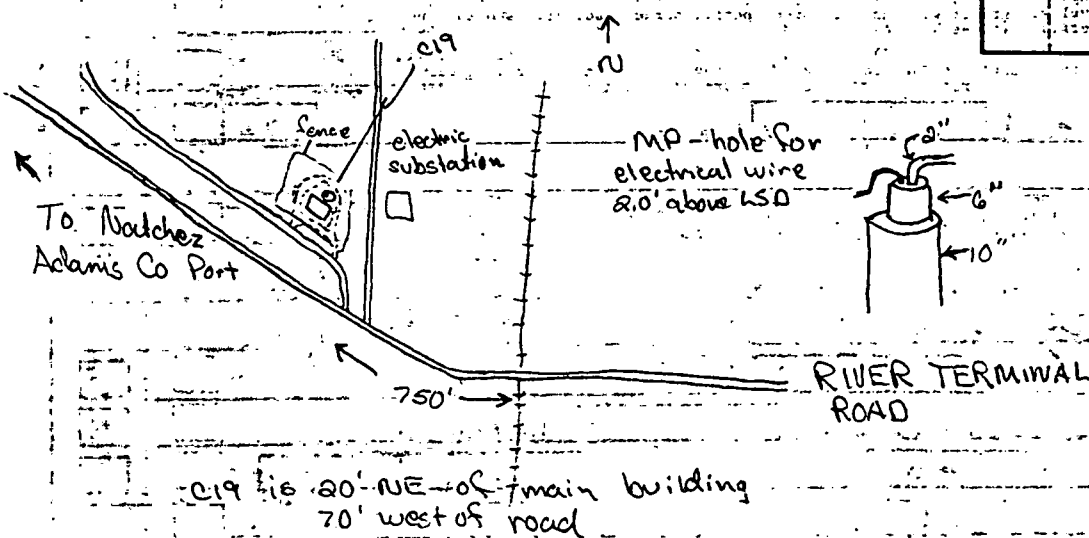 C19
N
fence
electric
substation
MP - hole for
electrical wire
2.0' above LSD
2"
6"
10"
To Natchez
Adams Co Port
750'
RIVER TERMINAL
ROAD
C19 is 20' NE of main building
70' west of road